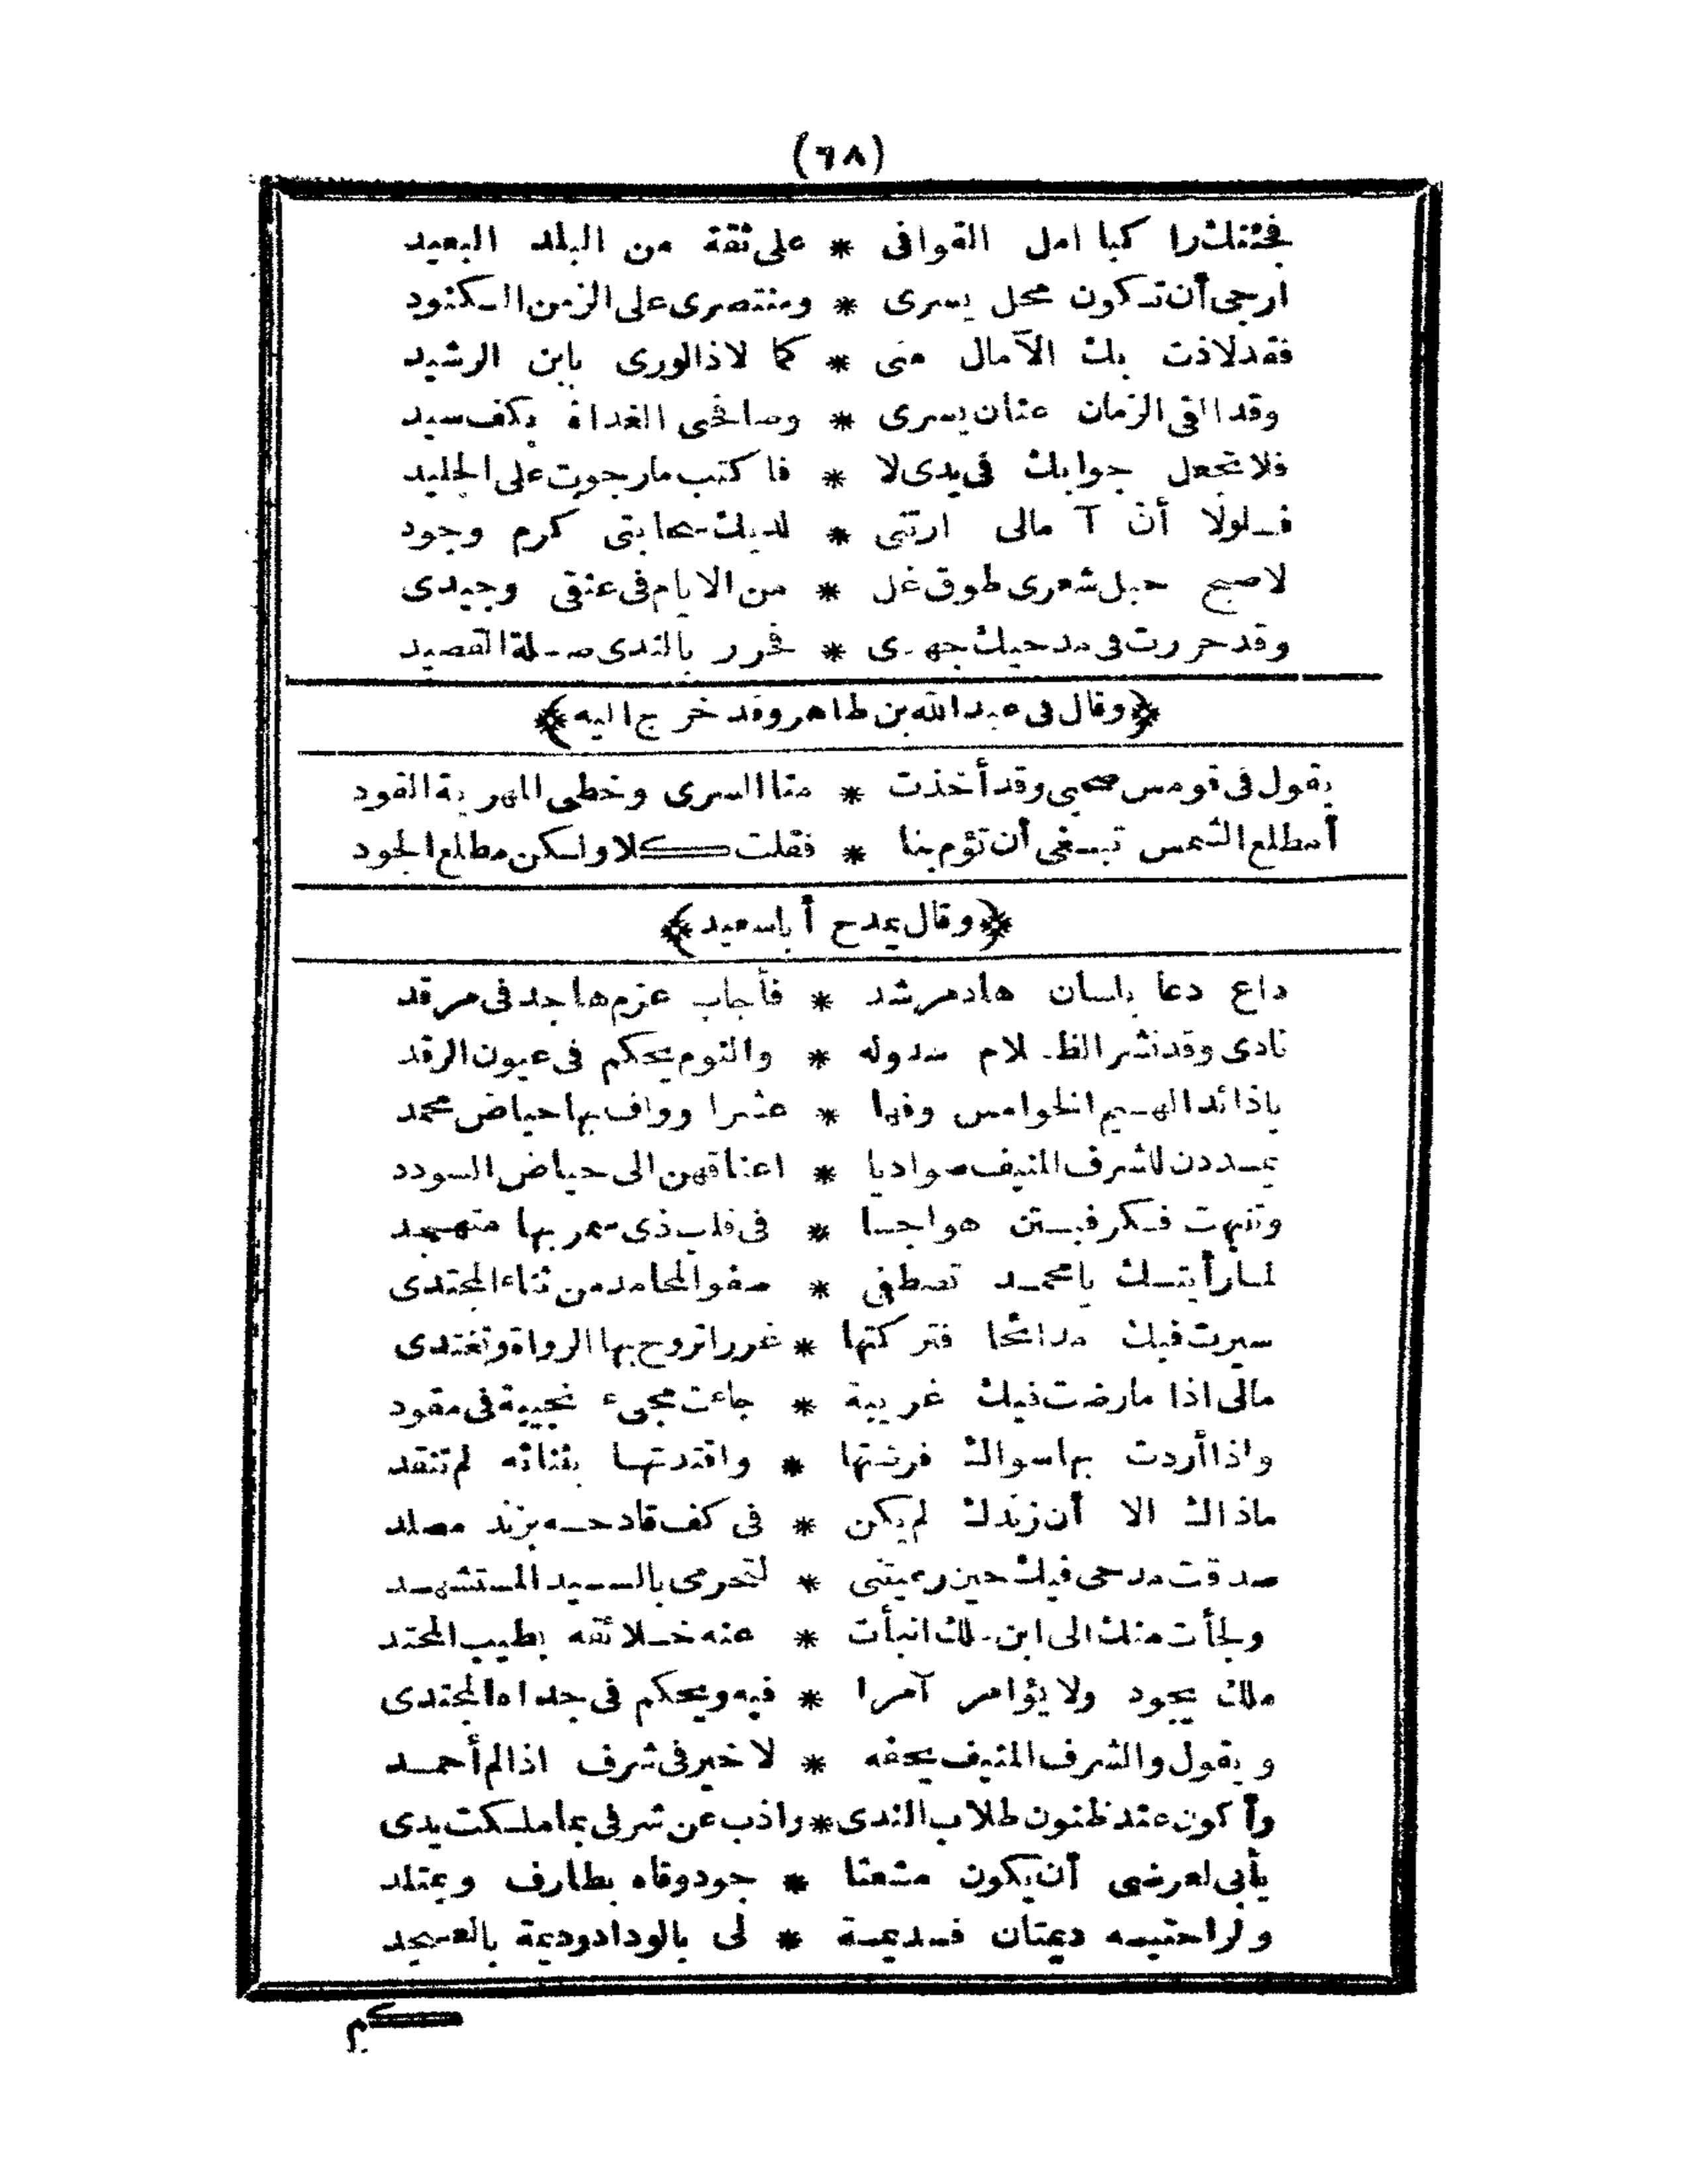 (٦٨)
فجئتك راكبا امل القوافى * على ثقة من البلد البعيد
ارجى أن تكون محل يسرى * ومنتصرى على الزمن الكنود
فقد لاذت بك الآمال منى * كما لاذ الورى بابن الرشيد
وقد القى الزمان عنان يسرى * وصافحنى الغداة بكف سيد
فلا تجعل جوابك فى يدى لا * فاكتب ما رجوت على الجليد
فلولا أن آمالى ارتنى * لديك سحابتى كرم وجود
لاصبح حبل شعرى طوق غل * من الايام فى عنقى وجيدى
وقد حررت فى مدحيك جهدى * فحرر بالندى صلة القصيد
﴿وقال فى عبد الله بن طاهر وقد خرج اليه﴾
يقول فى قومس صحبى وقد أخذت * منا السرى وخطى المهرية القود
أمطلع الشمس تبغى أن تؤم بنا * فقلت كلا ولكن مطلع الجود
﴿وقال يمدح أبا سعيد﴾
داع دعا بلسان هاد مرشد * فأجاب عزم هاجد فى مرقد
نادى وقد نشر الظلام سدوله * والنوم يحكم فى عيون الرقد
ياذائد الهيم الخوامس وفها * عشرا وواف بها حياض محمد
يمددن للشرف المنيف صواديا * اعناقهن الى حياض السودد
وتنبهت فكر فبتن هواجسا * فى قلب ذى سمر بها متهجد
لما رأيتك يا محمد تصطفى * صفو المحامد من ثناء المجتدى
سيرت فيك مدائحا فتركتها * غررا تروح بها الرواة وتغتدى
مالى اذا مارضت فيك غريبة * جاءت مجىء نجيبة فى مقود
واذا أردت بها سواك فرضتها * واقتدتها بثنائه لم تنقد
ماذاك الا أن زندك لم يكن * فى كف قادحه بزند مصلد
صدقت مدحى فيك حين رعيتنى * لتحرمى بالسيد المستشهد
ولجأت منك الى ابن ملك انبأت * عنه خلائقه بطيب المحتد
ملك يجود ولا يؤامر آمرا * فيه ويحكم فى جداه المجتدى
ويقول والشرف المنيف يحفه * لا خير فى شرف اذا لم أحمد
وأكون عند ظنون طلاب الندى * واذب عن شرفى بما ملكت يدى
يأبى لعرضى أن يكون مشعثا * جود وقاه بطارف ويمتلد
ولراحتيه ديمتان فديمة * لى بالوداد وديمة بالعسجد
كم